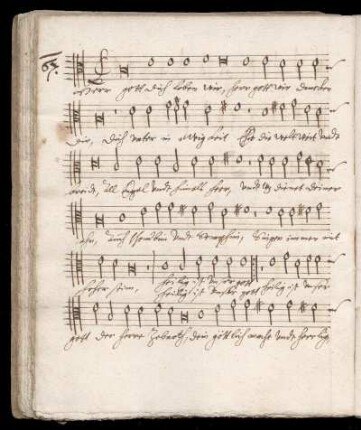 Herr gott dich loben wir, herr gott wir dancken
dir, dich vater in ewigkeit Ehr die welt weit und
breidt, all Engel und himels heer, und was dienet deiner
ehr, auch Cherubin und Seraphin, Singen immer mit
hoher stim, heilig ist unser gott
heilig ist unser gott heilig ist unser
gott der herre Zebaoth, dein göttlich macht und herrlig